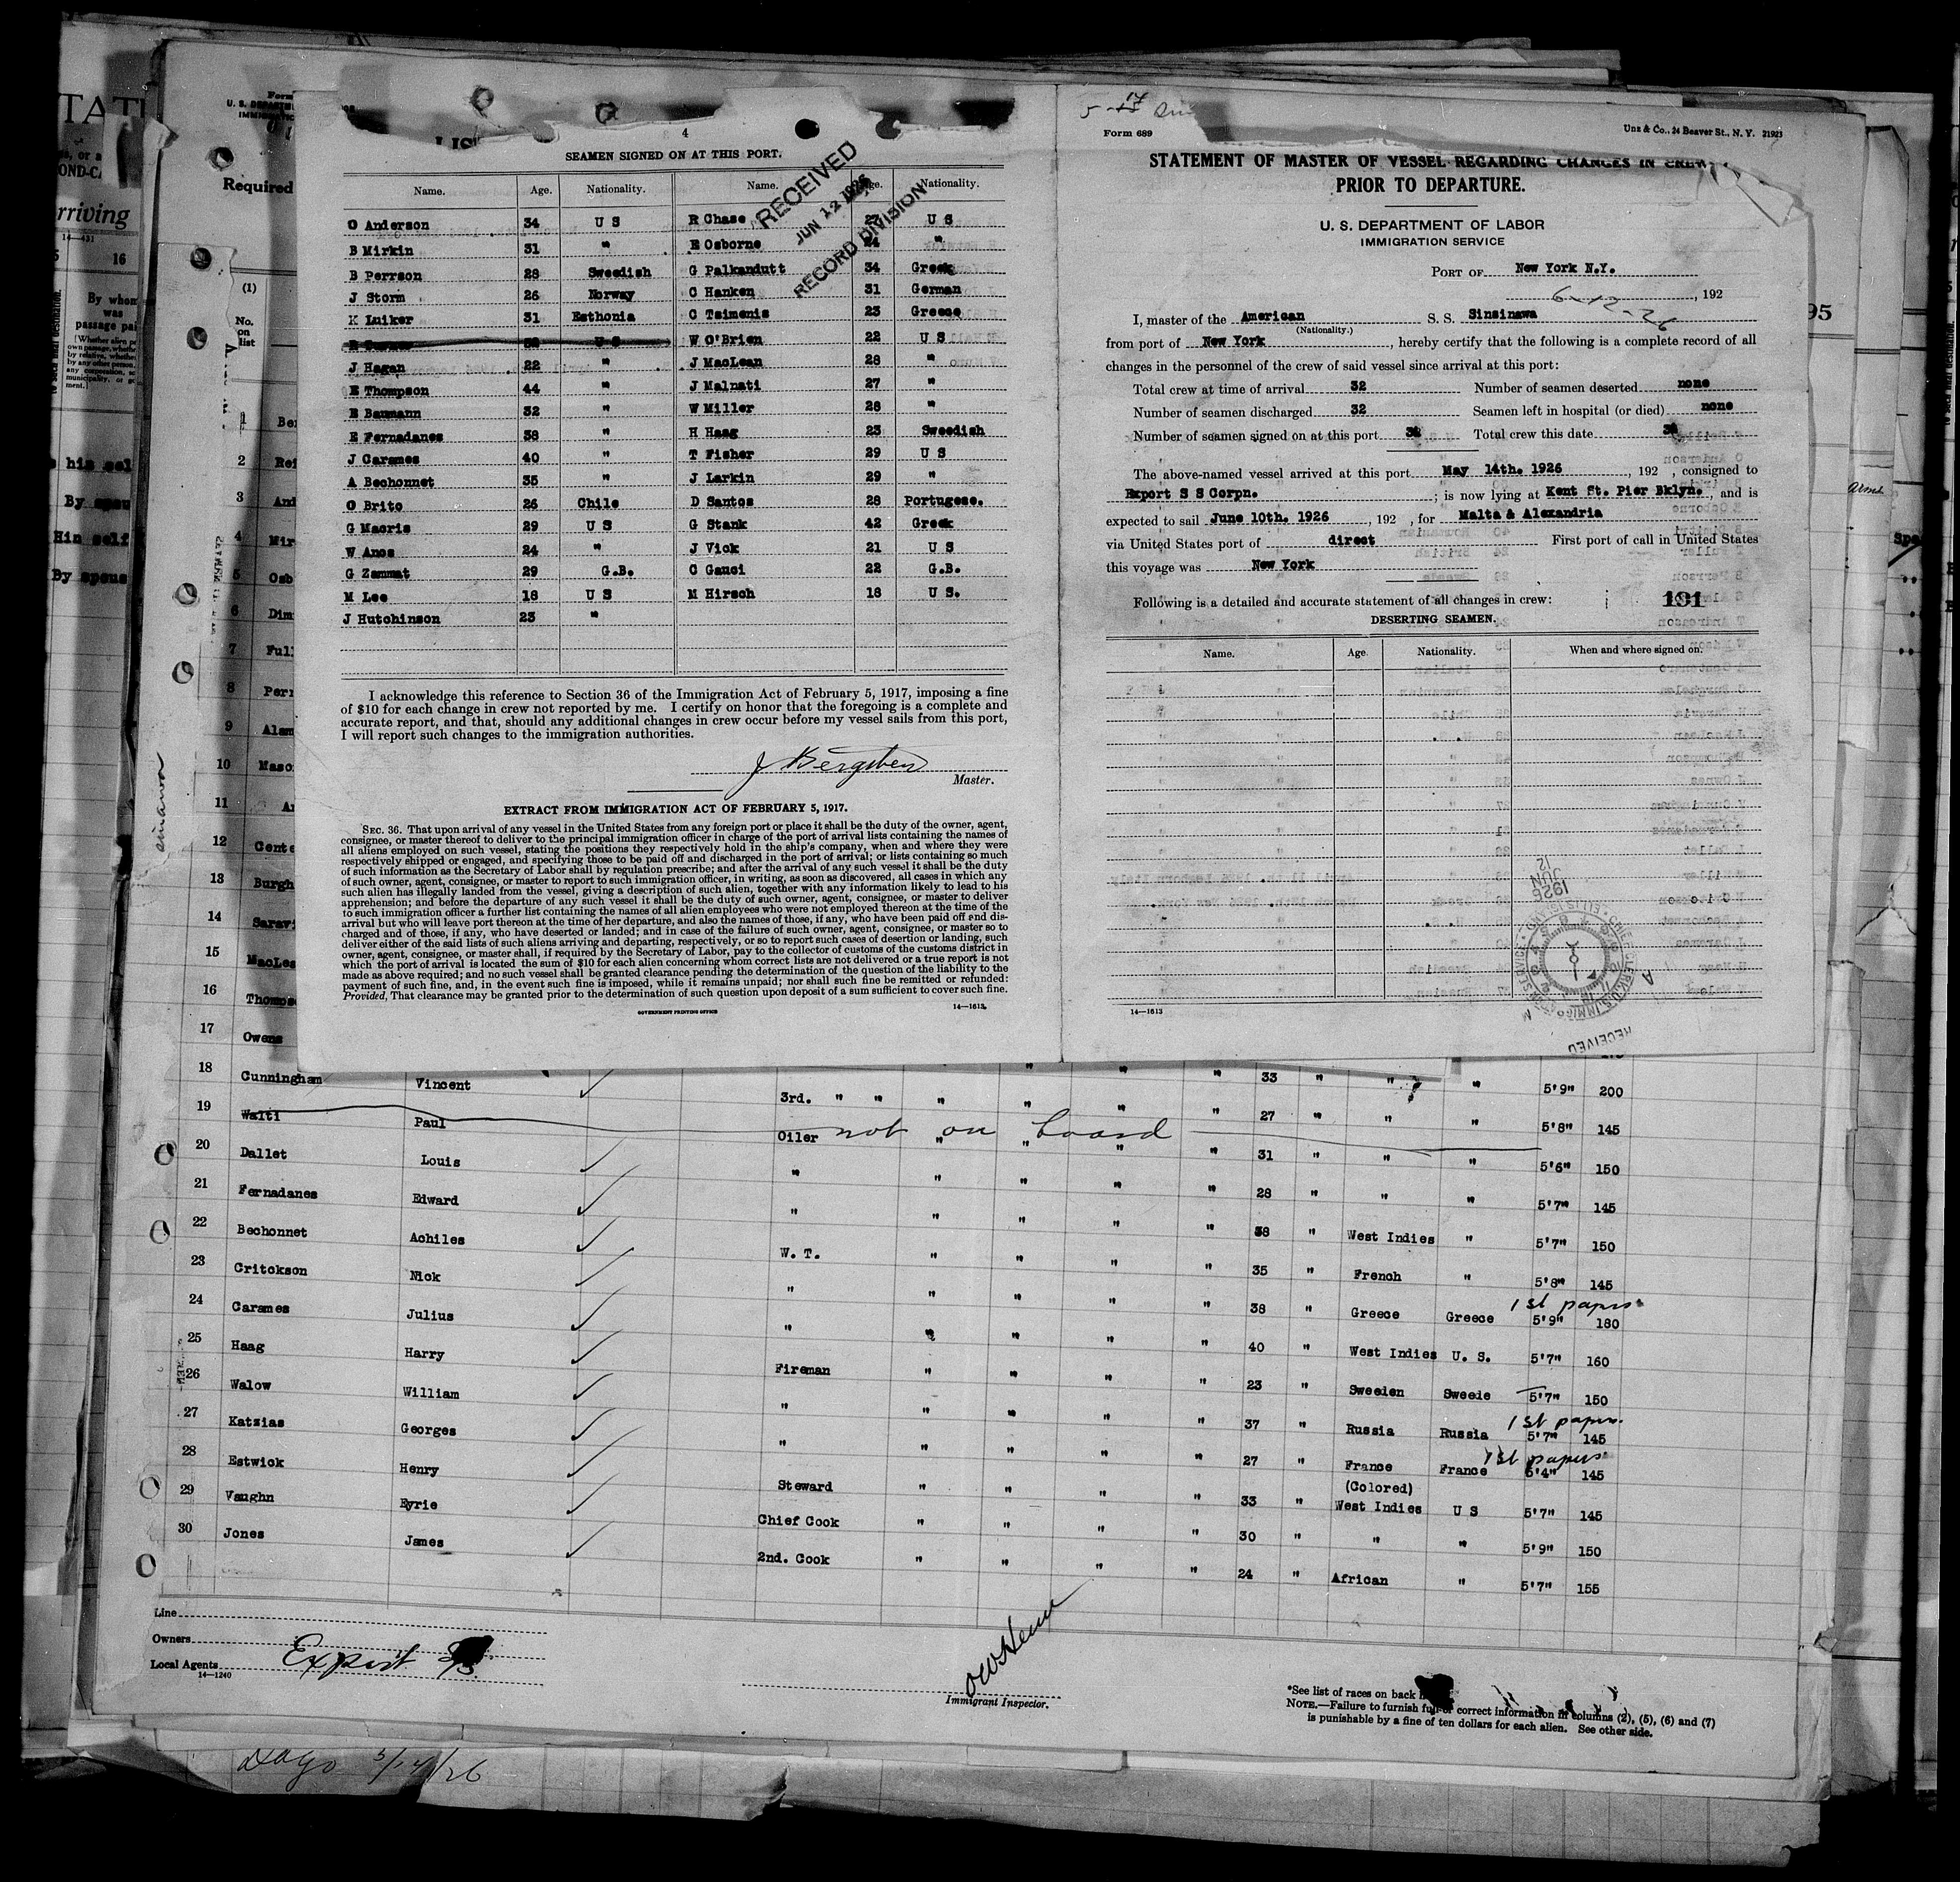 4
SEAMEN SIGNED ON AT THIS PORT.
Name. Age. Nationality. Name. Age. Nationality.
O Anderson 34 U S R Chase 27 U S
B Mirkin 31 " E Osborne 24 "
B Perrson 28 Swedish G Palkandutt 34 Greek
J Storm 26 Norway C Hanken 31 German
K Luiker 31 Esthonia C Tsimenis 23 Greece
U S W O'Brien 22 U S
J Hagan 22 " J MacLean 28 "
E Thompson 44 " J Malnati 27 "
E Baumann 32 " W Miller 28 "
E Fernadanes 38 " H Haag 23 Swedish
J Carames 40 " T Fisher 29 U S
A Bechonnet 35 " J Larkin 29 "
O Brito 26 Chile D Santos 28 Portugese.
G Macris 29 U S G Stank 42 Greek
W Anos 24 " J Vick 21 U S
G Zammat 29 G.B. C Gauci 22 G.B.
M Lee 18 U S M Hirsch 18 U S.
J Hutchinson 23 "
RECEIVED
JUN 12 1926
RECORD DIVISION
I acknowledge this reference to Section 36 of the Immigration Act of February 5, 1917, imposing a fine
of $10 for each change in crew not reported by me. I certify on honor that the foregoing is a complete and
accurate report, and that, should any additional changes in crew occur before my vessel sails from this port,
I will report such changes to the immigration authorities.
J Bergsben
Master.
EXTRACT FROM IMMIGRATION ACT OF FEBRUARY 5, 1917.
SEC. 36. That upon arrival of any vessel in the United States from any foreign port or place it shall be the duty of the owner, agent,
consignee, or master thereof to deliver to the principal immigration officer in charge of the port of arrival lists containing the names of
all aliens employed on such vessel, stating the positions they respectively hold in the ship's company, when and where they were
respectively shipped or engaged, and specifying those to be paid off and discharged in the port of arrival; or lists containing so much
of such information as the Secretary of Labor shall by regulation prescribe; and after the arrival of any such vessel it shall be the duty
of such owner, agent, consignee, or master to report to such immigration officer, in writing, as soon as discovered, all cases in which any
such alien has illegally landed from the vessel, giving a description of such alien, together with any information likely to lead to his
apprehension; and before the departure of any such vessel it shall be the duty of such owner, agent, consignee, or master to deliver
to such immigration officer a further list containing the names of all alien employees who were not employed thereon at the time of the
arrival but who will leave port thereon at the time of her departure, and also the names of those, if any, who have been paid off and dis-
charged and of those, if any, who have deserted or landed; and in case of the failure of such owner, agent, consignee, or master so to
deliver either of the said lists of such aliens arriving and departing, respectively, or so to report such cases of desertion or landing, such
owner, agent, consignee, or master shall, if required by the Secretary of Labor, pay to the collector of customs of the customs district in
which the port of arrival is located the sum of $10 for each alien concerning whom correct lists are not delivered or a true report is not
made as above required; and no such vessel shall be granted clearance pending the determination of the question of the liability to the
payment of such fine, and, in the event such fine is imposed, while it remains unpaid; nor shall such fine be remitted or refunded:
Provided, That clearance may be granted prior to the determination of such question upon deposit of a sum sufficient to cover such fine.
GOVERNMENT PRINTING OFFICE
14—1613
Form 689
Unz & Co., 24 Beaver St., N. Y. 21923
STATEMENT OF MASTER OF VESSEL REGARDING CHANGES IN CREW
PRIOR TO DEPARTURE.
U. S. DEPARTMENT OF LABOR
IMMIGRATION SERVICE
PORT OF New York N.Y.
6-12-26, 192
I, master of the American S. S. Sinsinawa
(Nationality.)
from port of New York, hereby certify that the following is a complete record of all
changes in the personnel of the crew of said vessel since arrival at this port:
Total crew at time of arrival 32 Number of seamen deserted none
Number of seamen discharged 32 Seamen left in hospital (or died) none
Number of seamen signed on at this port Total crew this date
The above-named vessel arrived at this port May 14th. 1926, 192 , consigned to
Export S S Corpn. ; is now lying at Kent St. Pier Bklyn., and is
expected to sail June 10th. 1926, 192 , for Malta & Alexandria
via United States port of direct First port of call in United States
this voyage was New York
Following is a detailed and accurate statement of all changes in crew: 191
DESERTING SEAMEN.
Name. Age. Nationality. When and where signed on.
1926
JUN
12
RECEIVED
14—1613
TATE
OND-CA
rriving
14—431
16
By whom
was
passage paid
his sel
By spou
Him self
By spous
Form
U. S. DEPARTM
IMMIGRATIO
Required
(1)
No.
on
list
1 Ber
2 Rei
3 And
4 Mir
5 Osb
6 Dim
7 Full
8 Perr
9 Alam
10 Maso
11 Ar
12 Cente
13 Burgh
14 Saravi
15 MacLea
16 Thomps
17 Owens
18 Cunningham Vincent 3rd. " " " " " " 33 " " " 5'9" 200
19 Walti Paul Oiler not on board " " " " 27 " " " 5'8" 145
20 Dallet Louis " " " " " 31 " " " 5'6" 150
21 Fernadanes Edward " " " " " 28 " " " 5'7" 145
22 Bechonnet Achiles W. T. " " " " 38 " West Indies " 5'7" 150
23 Critckson Nick " " " " " 35 " French " 5'8" 145
24 Carames Julius " " " " " 38 " Greece Greece 1st papers 5'9" 180
25 Haag Harry Fireman " " " " 40 " West Indies U. S. 5'7" 160
26 Walow William " " " " " 23 " Sweden Swede 5'7" 150
27 Katzias Georges " " " " " 37 " Russia Russia 1st papers 5'7" 145
28 Estwick Henry Steward " " " " 27 " France France 1st papers 5'4" 145
29 Vaughn Eyrie Chief Cook " " " " 33 " (Colored) West Indies U S 5'7" 145
30 Jones James 2nd. Cook " " " " 30 " " " 5'9" 150
24 " African " 5'7" 155
Line
Owners
Local Agents Export
14—1240
Immigrant Inspector.
*See list of races on back
NOTE.—Failure to furnish full or correct information in columns (2), (5), (6) and (7)
is punishable by a fine of ten dollars for each alien. See other side.
5/14/26
95